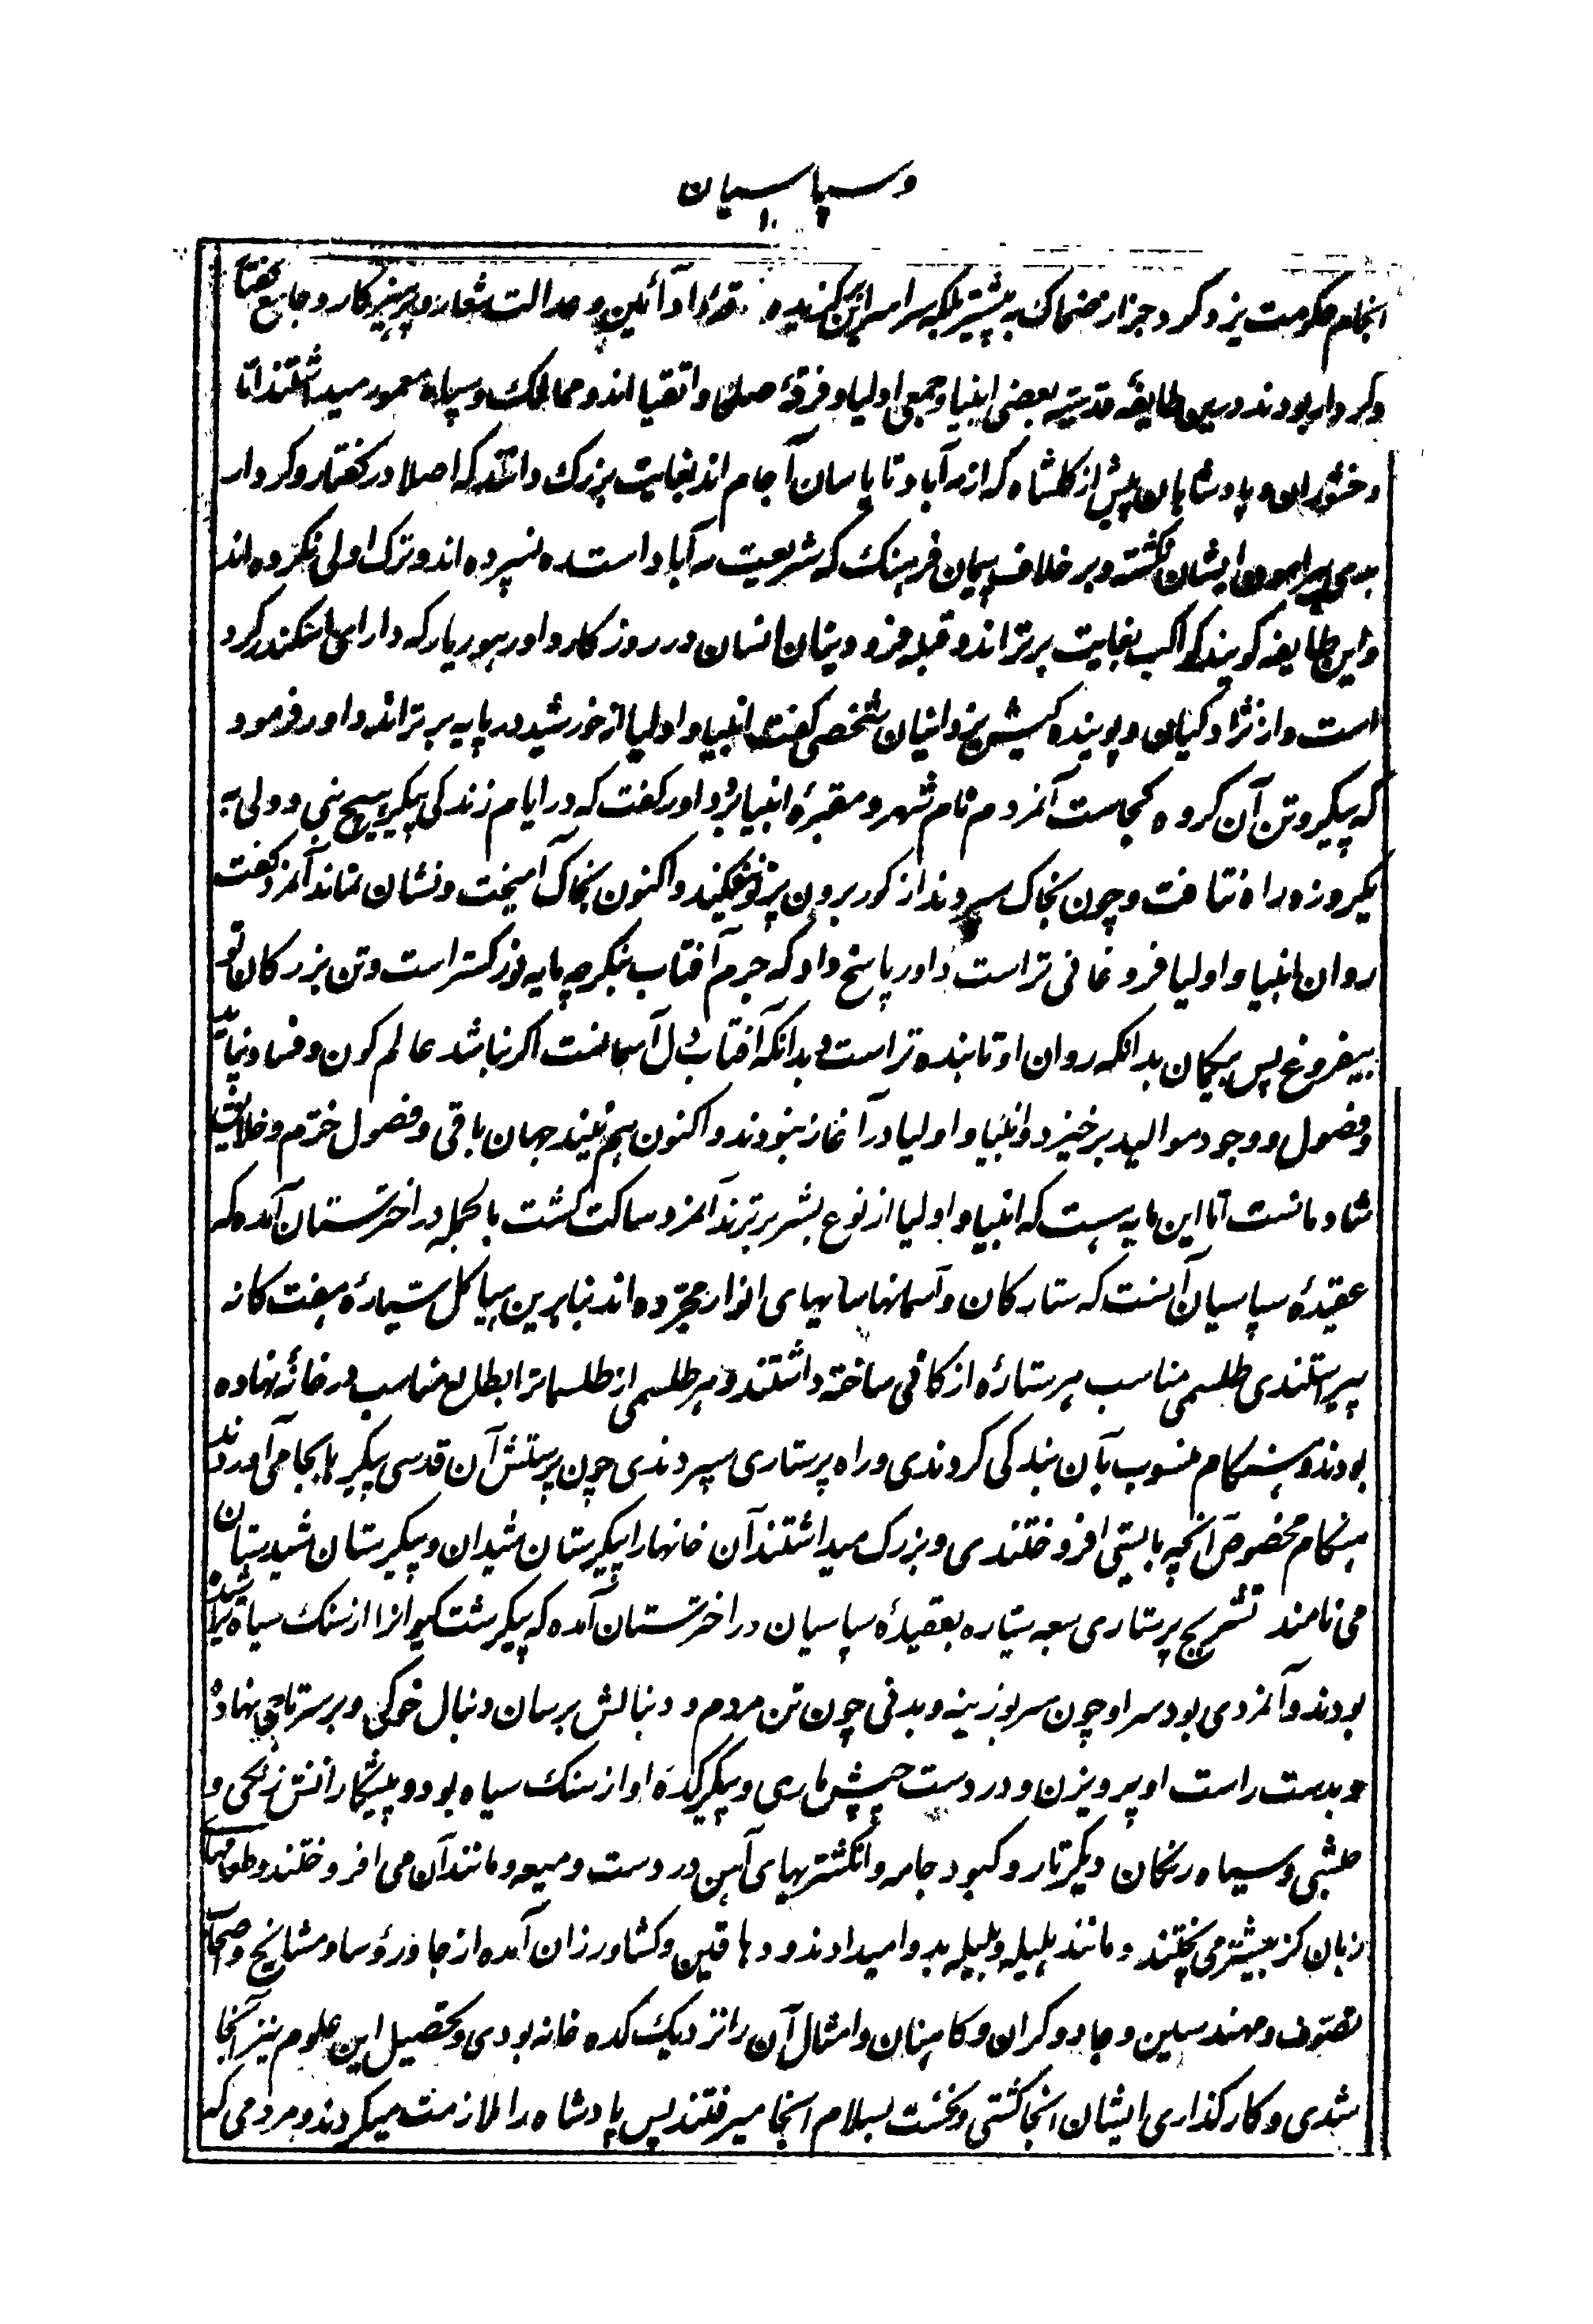 وسپاسیان
۱۰
انجام حکومت یزدگرد جز از ضحاک به بیشتر بلکه سراسر این گزیده داد آئین و عدالت شعار و پرهیزکار و جامع گفتار
وکردار بودند درین طایفهٔ قدسیّه بعضی انبیا و جمعی اولیا و فرقهٔ صلحا و اتقیا اند و ممالک و سپاه معمور میداشتند اما
وخشوران و پادشاهان پیش از گلشاه که از مه آباد تا یاسان آجام اند بغایت بزرک دانند که اصلا در گفتار و کردار
بدی پیرامون ایشان نگشته و بر خلاف پیمان فرهنک که شریعت مه آباد است ره نسپرده اند و ترک اولی نکرده اند
و این طایفه گویند کواکب بغایت برتر اند و قبله فرودینان انسان در روزکار داور هوریار که دارای اسکندر کرد
است و از نژاد کیان و پوینده کیش یزدانیان شخصی گفت انبیا و اولیا از خورشید در پایه برتر اند داور فرمود
که پیکر و تن آن کروه کجاست آنمرد م نام شهر و مقبرهٔ انبیا برد داور کفت که در ایام زندکی پیکر هیچ نبی و ولی به
یکروزه راه نتافت و چون بخاک سپردند از کور برون پرتو نفکند و اکنون بخاک آمیخت و نشان نماند آنمرد کفت
روان انبیا و اولیا فروغانی تر است داور پاسخ داد که جرم آفتاب بنگر چه مایه نور کستر است و تن بزرکان تو
بیفروغ پس بیکمان بدانکه روان او تابنده تر است و بدانکه آفتاب دل آسمانست اکر نباشد عالم کون و فساد نپاید
و فصول و وجود موالید بر خیزد و انبیا و اولیا در آغاز نبودند و اکنون هم نیند جهان باقی و فصول خرّم و خلایق
شادمانست اما این مایه هست که انبیا و اولیا از نوع بشر برترند آنمرد ساکت کشت بالجمله در اخترستان آمده که
عقیدهٔ سپاسیان آنست که ستارکان و آسمانها سایهای انوار مجرّده اند بنابرین هیاکل سیّارهٔ هفت کانه
پیراستندی طلسمی مناسب هر ستارهٔ از کانی ساخته داشتند و هر طلسمی از طلسماترا بطالع مناسب در خانهٔ نهاده
بودند و بهنکام منسوب بآن بندکی کردندی و راه پرستاری سپردندی چون پرستش آن قدسی پیکر ها بجا می آوردند
هنکام مخصوص آنچه بایستی افروختندی و بزرک میداشتند آن خانهارا پیکرستان شیدان و پیکرستان شیدستان
می نامند تشریح پرستاری سبعه سیّاره بعقیدهٔ سپاسیان در اخترستان آمده که پیکر شت کیوانرا از سنک سیاه تراشیده
بودند و آنمردی بود سر او چون سر بوزینه و بدنی چون تن مردم و دنبالش بر سان دنبال خوکی و بر سر تاجی نهاده
و بدست راست او پرویزن و در دست چپش ماری و پیکرکدهٔ او از سنک سیاه بود و پیشکارانش زنکی و
حبشی و سیاه رنکان دیکر تار و کبود جامه و انکشتریهای آهن در دست و میعه و مانند آن می افروختند و طعامها
زبان کز بیشتر می پختند و مانند هلیله و بلیله بدوا میدادند و دهاقین و کشاورزان آمده از جا و رؤسا و مشایخ و اصحاب
تصوّف و مهندسین و جادوکران و کاهنان و امثال آن را نزدیک کده خانه بودی و تحصیل این علوم نیز آنجا
شدی و کارکذاری ایشان آنجا کشتی و نخست بسلام آنجا میرفتند پس پادشاه را ملازمت میکردند و مردمی که